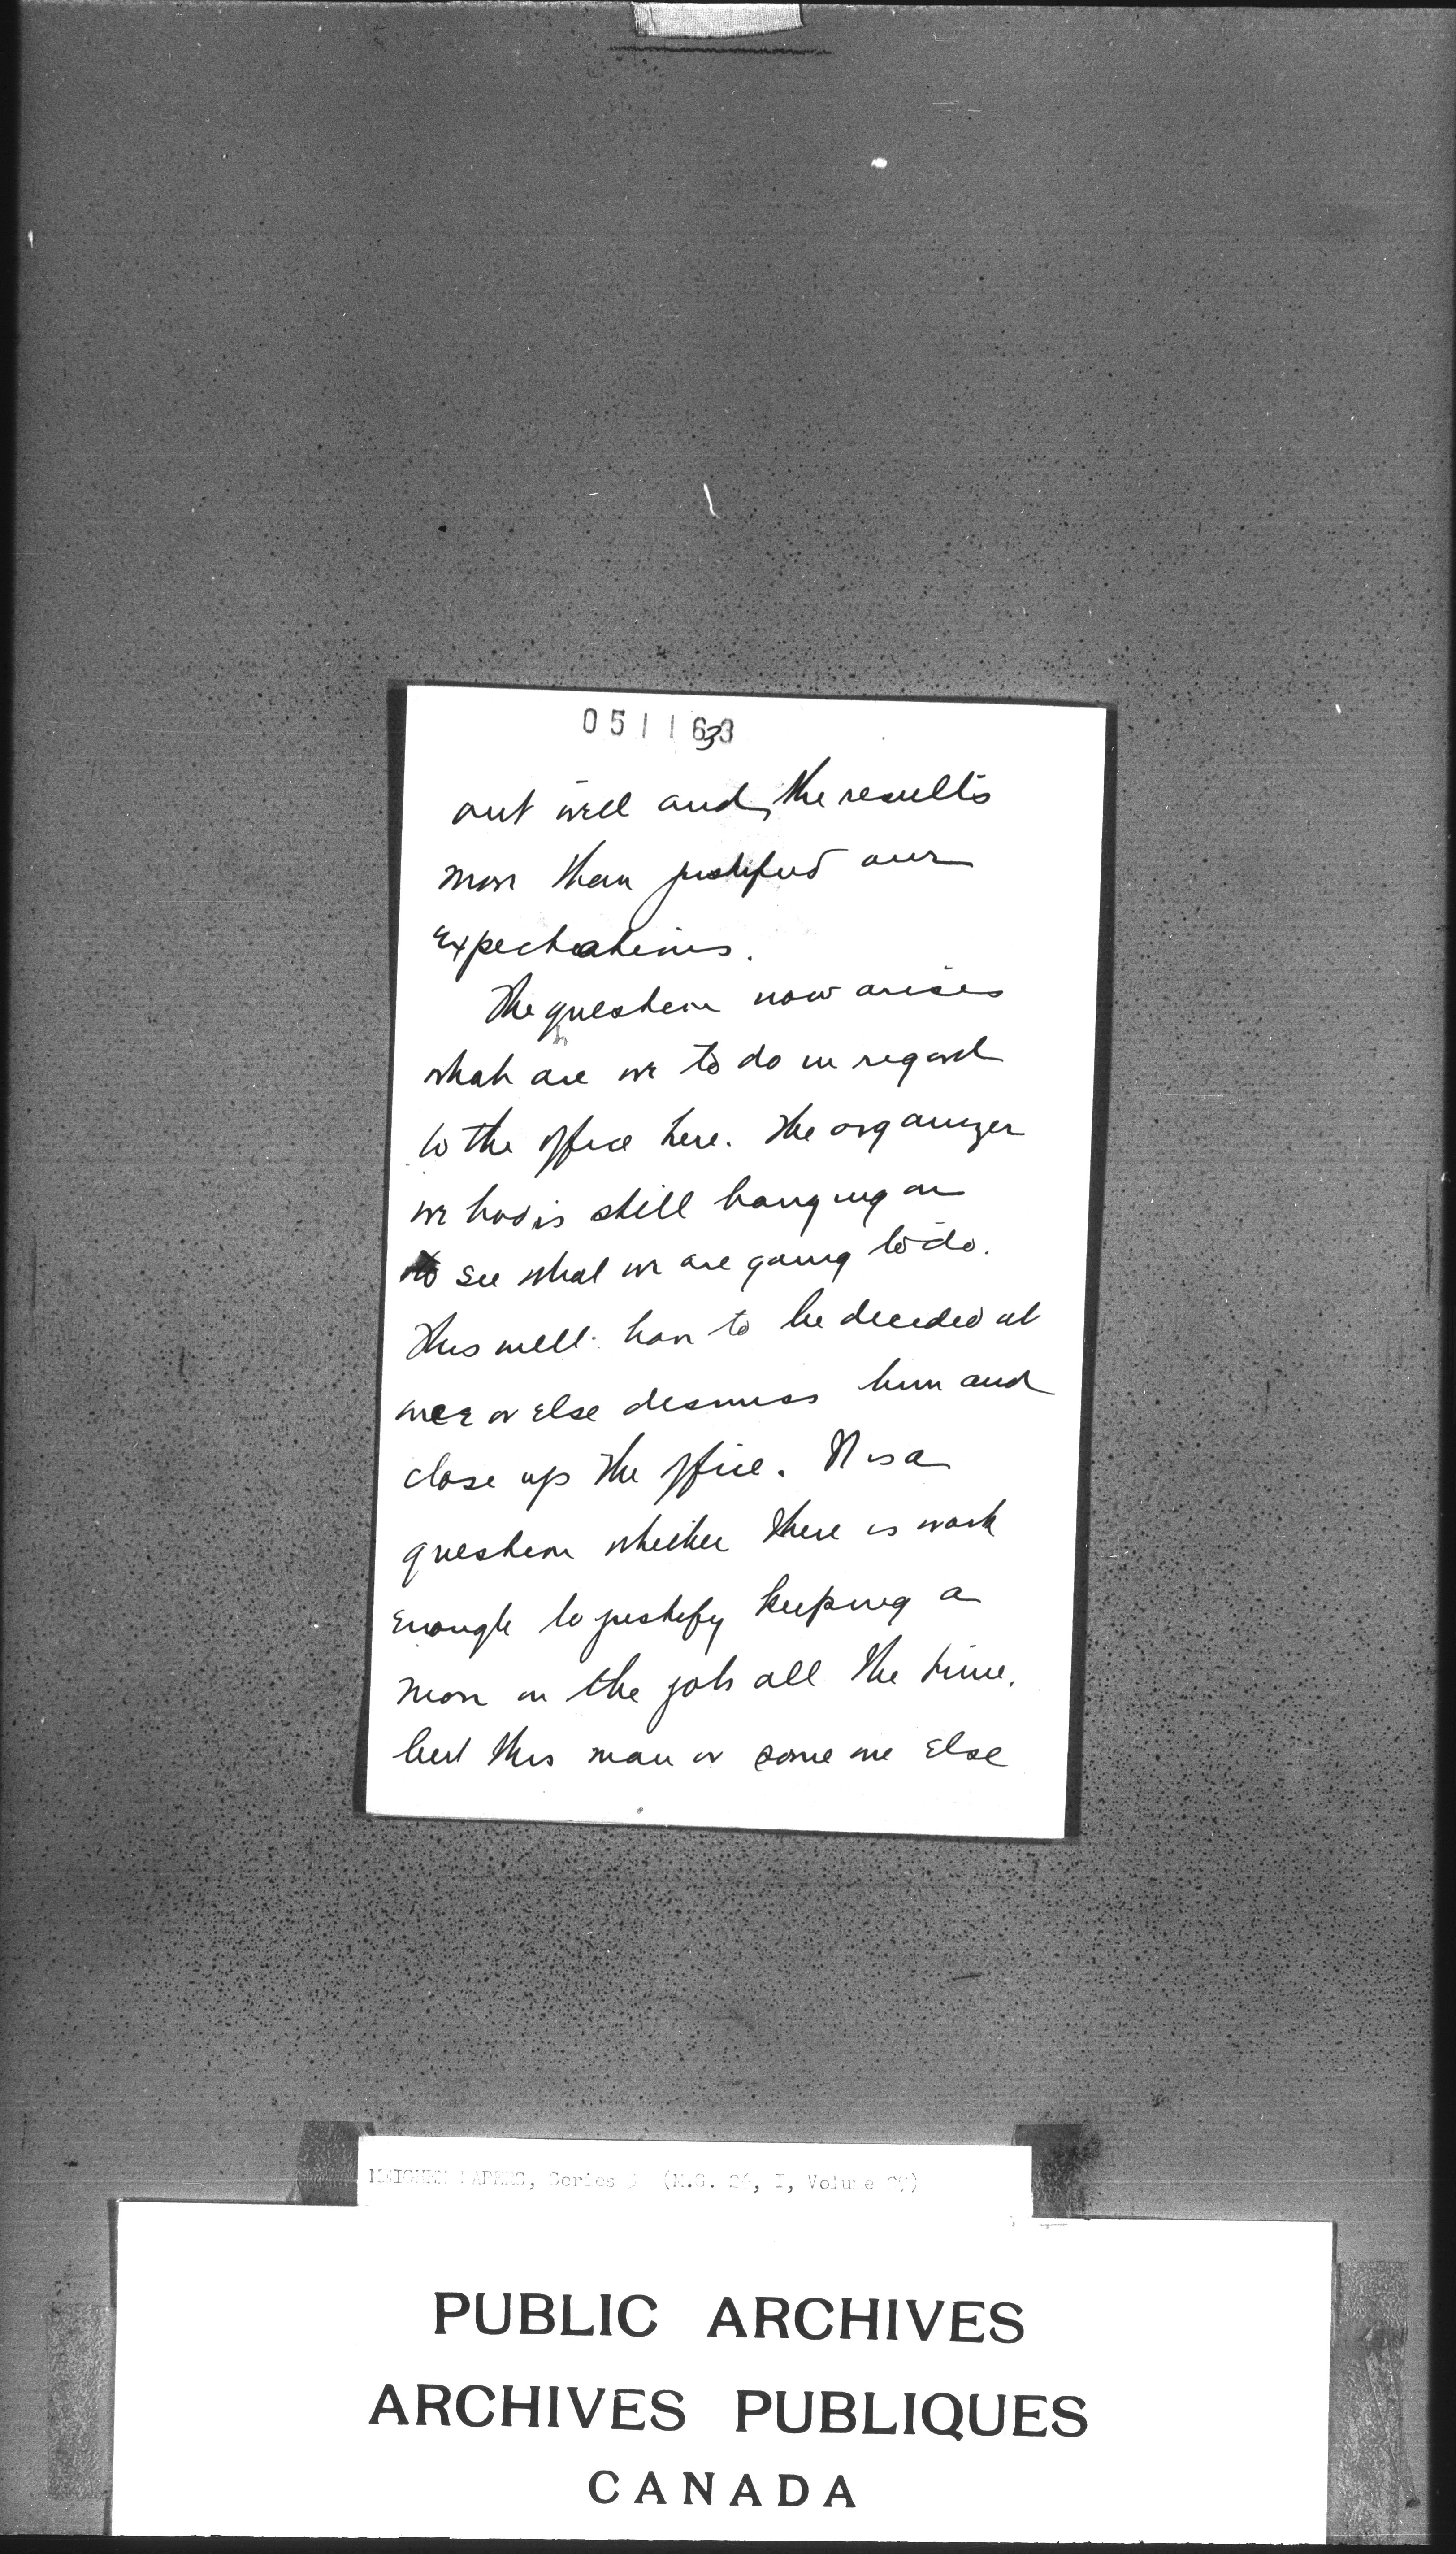 051163
3
out well and, the results
more than justified our
expectations.
The question now arises
what are we to do in regard
to the office here. The organizer
we had is still hanging on
to see what we are going to do.
This will have to be decided at
once or else dismiss him and
close up the office. It is a
question whether there is work
enough to justify keeping a
man on the job all the time,
but this man or some one else
MEIGHEN PAPERS, Series (M.G. 26, I, Volume
PUBLIC ARCHIVES
ARCHIVES PUBLIQUES
CANADA